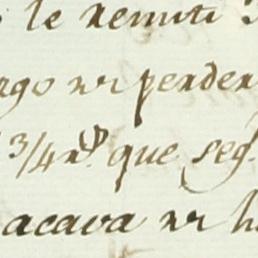 le remiti
rgo nr perder
3/4 rs. que seg.
acava nr h